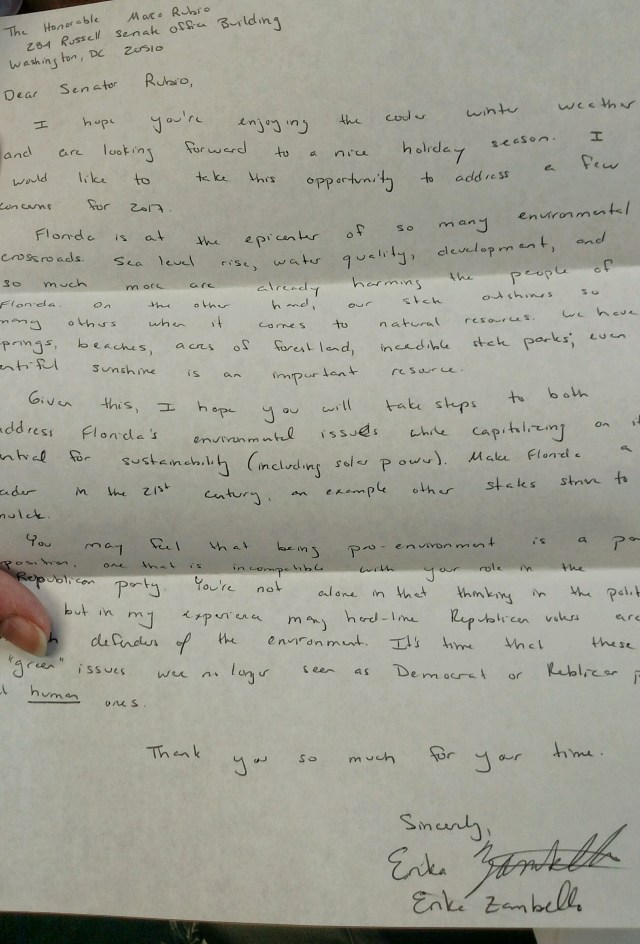 The Honorable Marco Rubio
284 Russell Senate Office Building
Washington, DC 20510
Dear Senator Rubio,
I hope you're enjoying the cooler winter weather
and are looking forward to a nice holiday season. I
would like to take this opportunity to address a few
concerns for 2017.
Florida is at the epicenter of so many environmental
crossroads. Sea level rise, water quality, development, and
so much more are already harming the people of
Florida. On the other hand, our state outshines so
many others when it comes to natural resources. We have
springs, beaches, acres of forest land, incredible state parks; even
entiful sunshine is an important resource.
Given this, I hope you will take steps to both
address Florida's environmental issues while capitalizing on it
ential for sustainability (including solar power). Make Florida a
ader in the 21st century, an example other states strive to
mulate.
You may feel that being pro-environment is a
position, one that is incompatible with your role in the
Republican party. You're not alone in that thinking in the polit
but in my experience many hard-line Republican voters are
defenders of the environment. It's time that these
"green" issues were no longer seen as Democrat or Reblican
human ones.
Thank you so much for your time.
Sincerely,
Erika Zambello
Erika Zambello